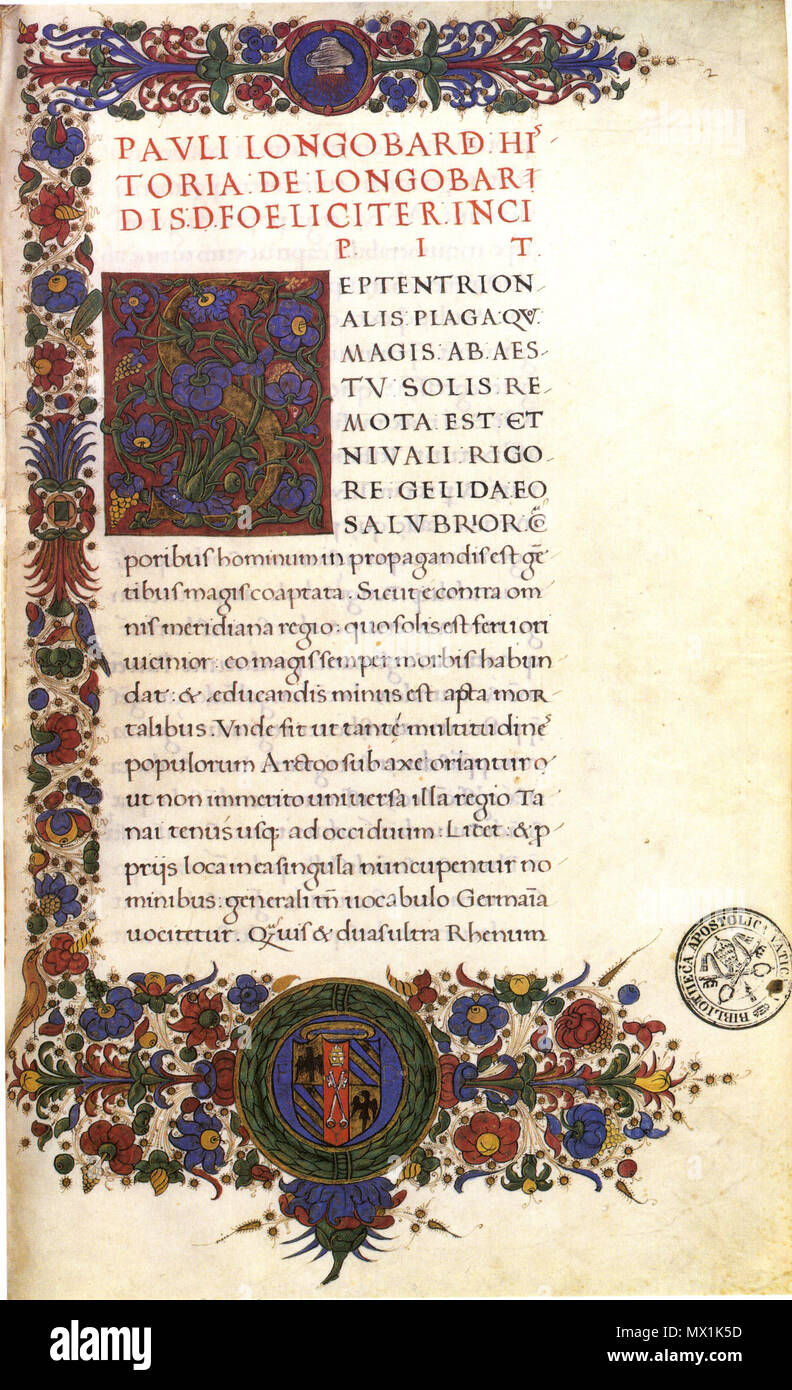 2
PAVLI LONGOBARDI: HIS
TORIA: DE LONGOBARI
DIS: D. FOELICITER. INCI
P I T.
EPTENTRION
ALIS PLAGA QV.
MAGIS. AB. AES-
TV SOLIS RE
MOTA EST. ET
NIVALI RIGO
RE GELIDA EO
SALVBRIOR CŌ
poribus hominum in propagandis est gē
tibus magis coaptata. Sicut e contra om
nis meridiana regio: quo solis est feruori
uicinior: eo magis semper morbis habun
dat: & educandis minus est apta mor
talibus. Vnde fit ut tantę multitudines
populorum Arctoo sub axe oriantur
ut non immerito uniuersa illa regio Ta
nai tenus usq; ad occiduum: Licet: & p
prijs loca in ea singula nuncupentur no
minibus: generali tn̄ uocabulo Germaīa
uocitetur. Quis & duas ultra Rhenum
BIBLIOTHECA APOSTOLICA VATIC
alamy
a
alamy
Image ID: MX1K5D
www.alamy.com